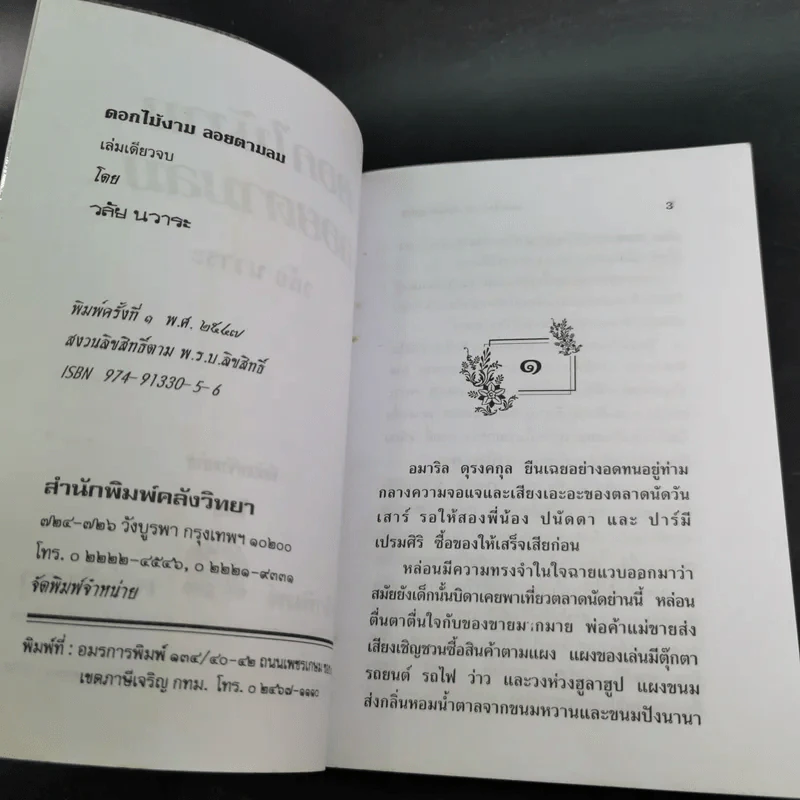 ดอกไม้งาม ลอยตามลม
เล่มเดียวจบ
โดย
วลัย นวาระ
พิมพ์ครั้งที่ ๑ พ.ศ. ๒๕๔๗
สงวนลิขสิทธิ์ตาม พ.ร.บ.ลิขสิทธิ์
ISBN 974-91330-5-6
สำนักพิมพ์คลังวิทยา
๗๒๔-๗๒๖ วังบูรพา กรุงเทพฯ ๑๐๒๐๐
โทร. ๐ ๒๒๒๒-๔๕๔๖, ๐ ๒๒๒๑-๙๓๓๑
จัดพิมพ์จำหน่าย
พิมพ์ที่ : อมรการพิมพ์ ๑๓๔/๔๐-๔๒ ถนนเพชรเกษม
เขตภาษีเจริญ กทม. โทร. ๐ ๒๔๖๗-๑๑๑๐
3
๑
อมาริล ดุรงคกุล ยืนเฉยอย่างอดทนอยู่ท่าม
กลางความจอแจและเสียงเอะอะของตลาดนัดวัน
เสาร์ รอให้สองพี่น้อง ปนัดดา และ ปาร์มี
เปรมศิริ ซื้อของให้เสร็จเสียก่อน
หล่อนมีความทรงจำในใจฉายแวบออกมาว่า
สมัยยังเด็กนั้นบิดาเคยพาเที่ยวตลาดนัดย่านนี้ หล่อน
ตื่นตาตื่นใจกับของขายมากมาย พ่อค้าแม่ขายส่ง
เสียงเชิญชวนซื้อสินค้าตามแผง แผงของเล่นมีตุ๊กตา
รถยนต์ รถไฟ ว่าว และวงห่วงฮูลาฮูป แผงขนม
ส่งกลิ่นหอมน้ำตาลจากขนมหวานและขนมปังนานา